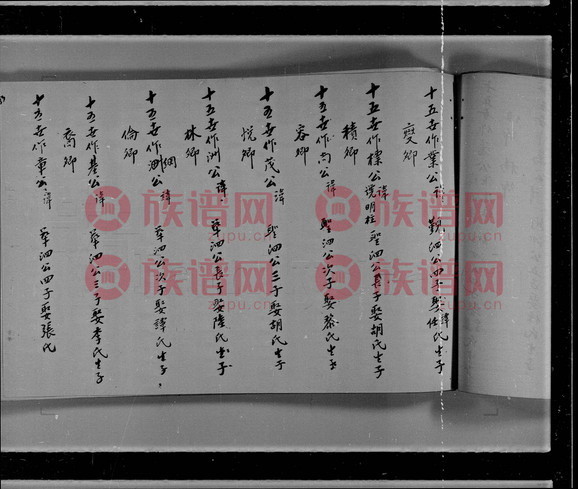 十五世作業公諱 觀泗公四子娶任氏生子
燮卿
十五世作標公諱明柱 聖泗公長子娶胡氏生子
積卿
十五世作尚公諱 聖泗公次子娶黎氏生子
容卿
十五世作茂公諱 聖泗公三子娶胡氏生子
悅卿
十五世作洲公諱 華泗公長子娶陸氏生子
林卿
十五世作 公諱 華泗公次子娶譚氏生子
倫卿
十五世作基公諱 華泗公三子娶李氏生子
喬卿
十五世作章公諱 華泗公四子娶張氏
族谱网
zupu.cn